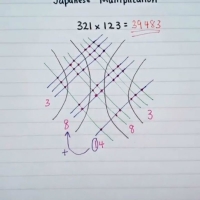 Japanese Multiplication
321 x 123 = 39483
3
3
8
8
14
+